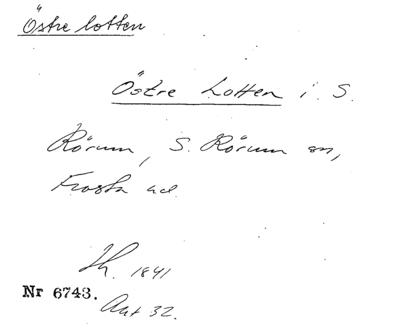 Östre lotten
Östre Lotten i S.
Rörum, S. Rörum sn,
Frosta hd
Lh. 1841
Nr 6743.
Akt 32.